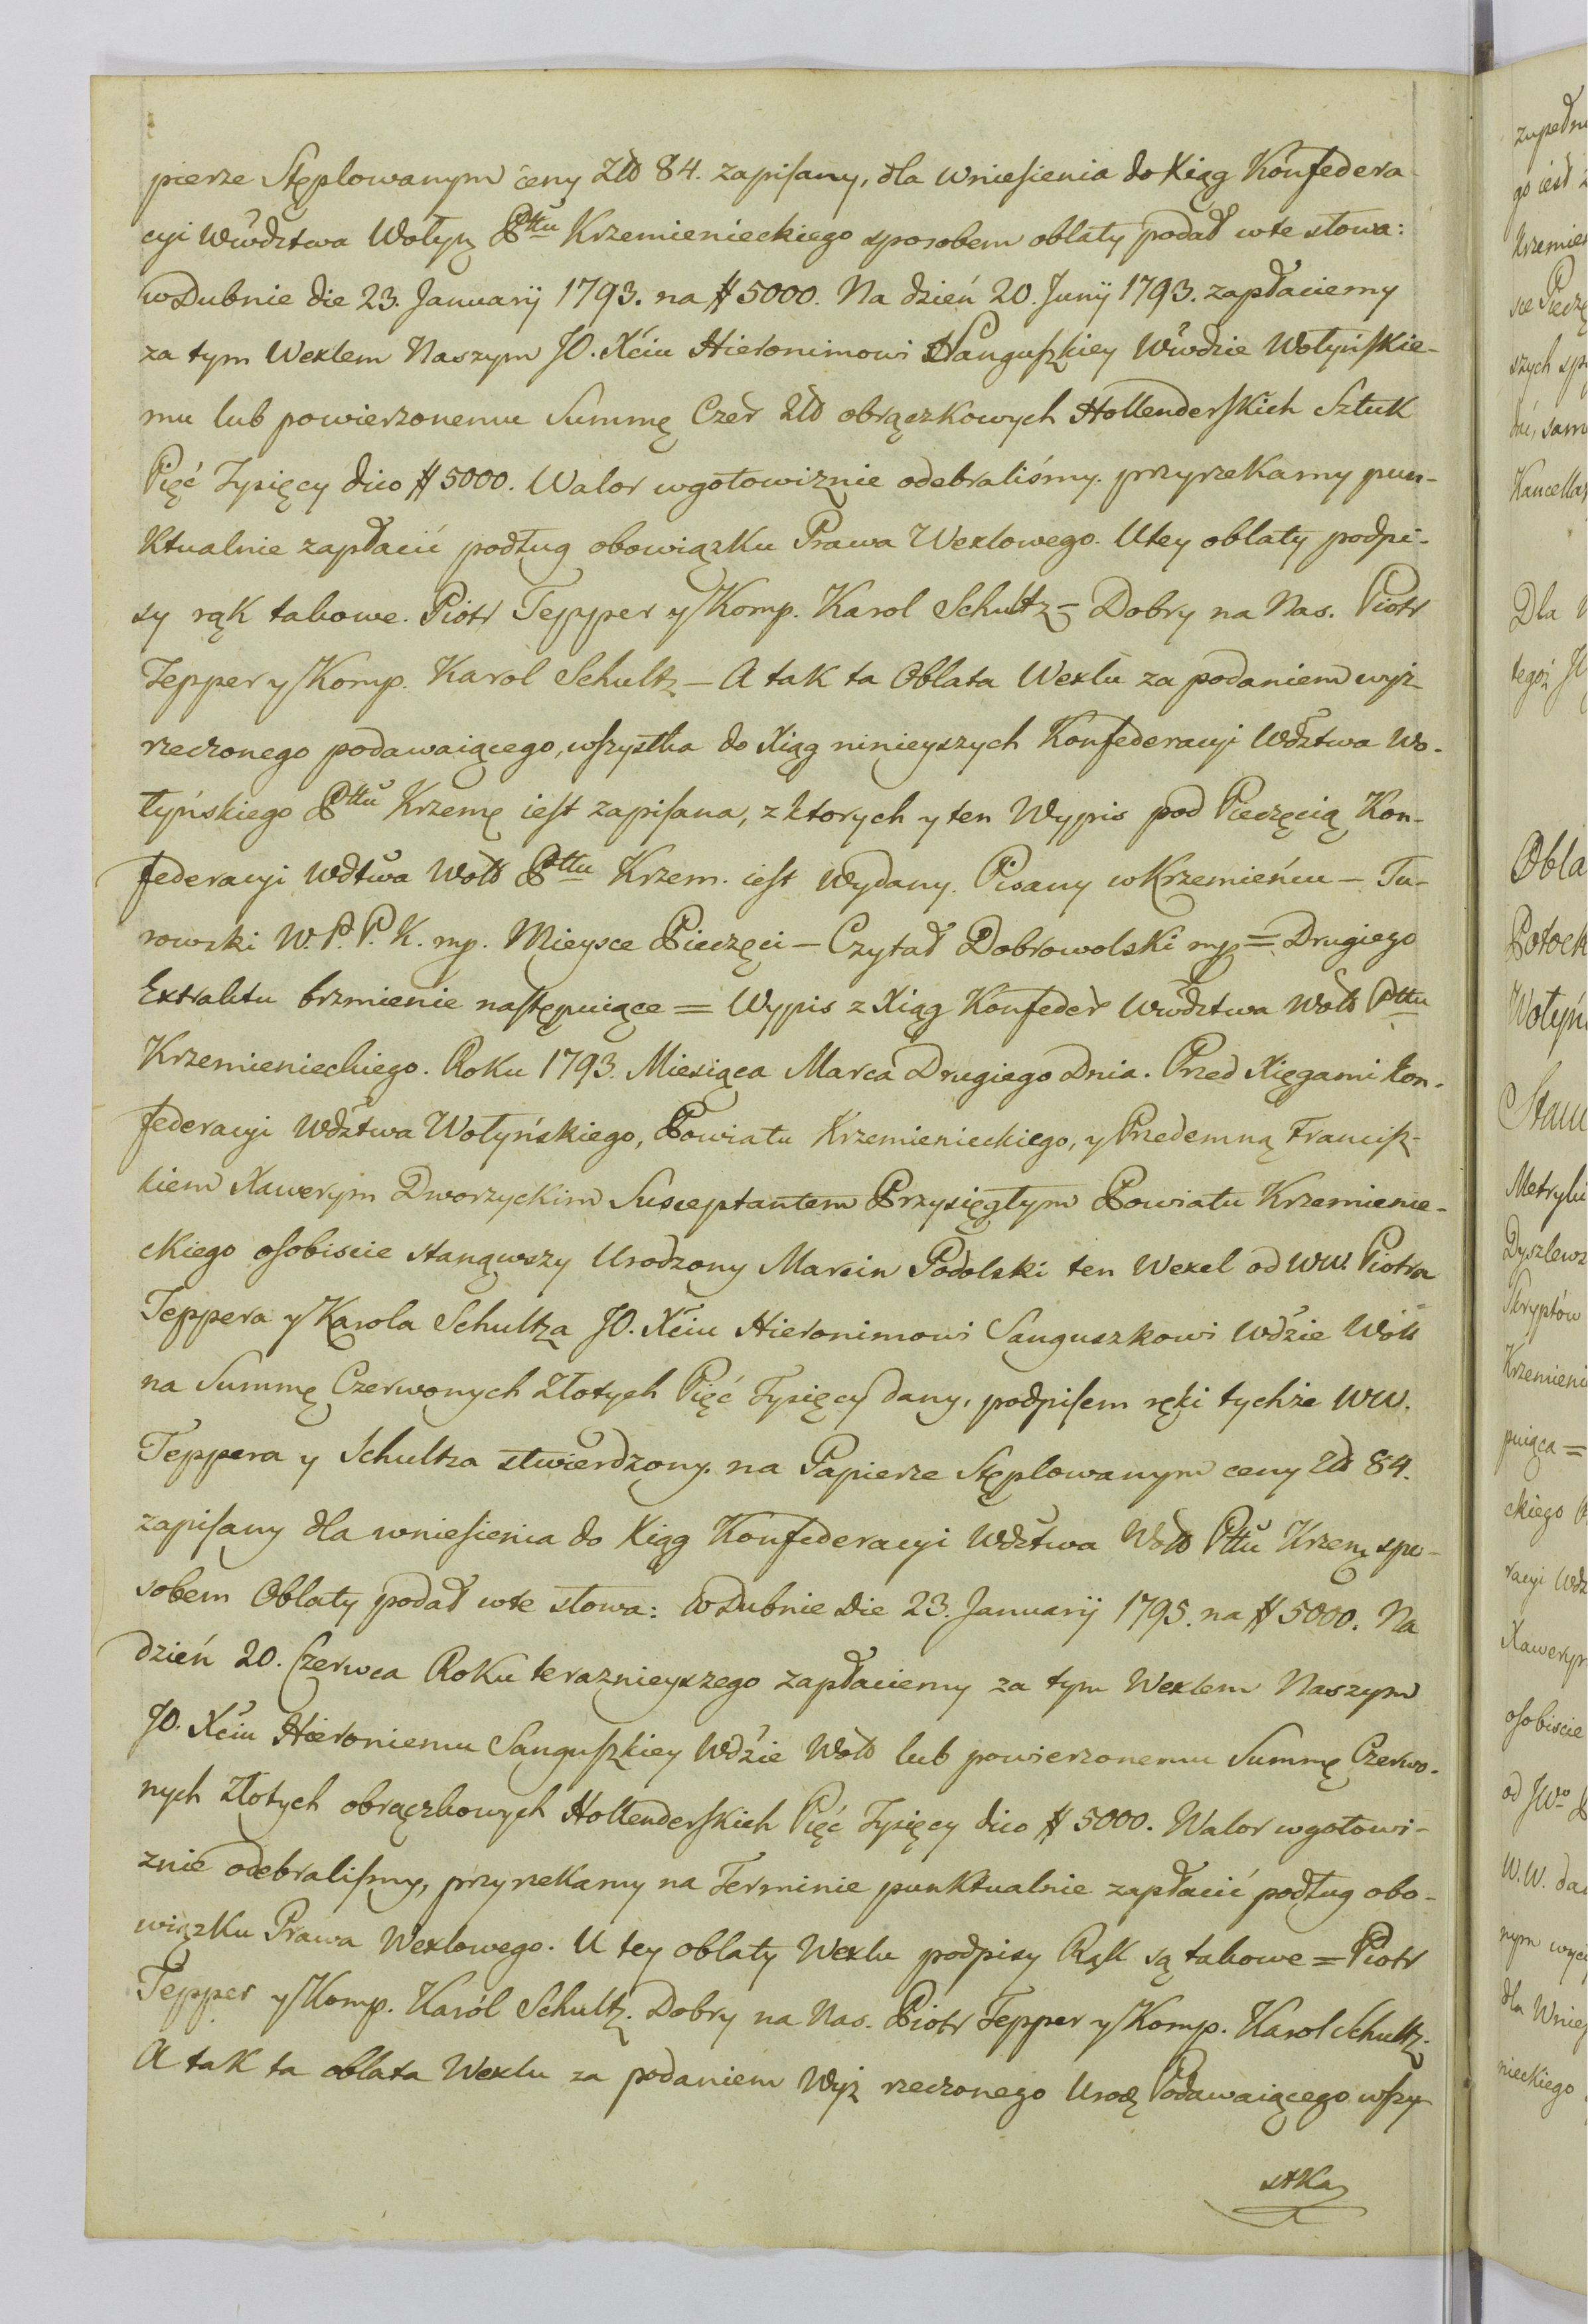 pierze Stęplowanym ceny Złł 84. zapisany, dla wniesienia do Xiąg Konfedera
cyi Wwdztwa Wołyn Pttu Krzemienieckiego sposobem oblaty podał w te słowa:
w Dubnie die 23. Januarij 1793. na # 5000. Na dzień 20. Junij 1793. zapłaciemy
za tym Wexlem Naszym JO. Xciu Hieronimowi Sanguszkiey Wwdzie Wołyńskie-
mu lub powierzonemu Summę Czer Złł obrączkowych Hollenderskich Sztuk
Pięć Tysięcy dico # 5000. Walor w gotowiznie odebraliśmy. przyrzekamy pun-
ktualnie zapłacić podług obowiązku Prawa Wexlowego. U tey oblaty podpi-
sy rąk takowe. Piotr Tepper y Komp. Karol Schultz = Dobry na Nas. Piotr
Tepper y Komp. Karol Schultz — A tak ta Oblata Wexlu za podaniem wyż
rzeczonego podawaiącego, wszystka do Xiąg ninieyszych Konfederacyi Wdztwa Wo-
łyńskiego Pttu Krzemę iest zapisana, z ktorych y ten Wypis pod Pieczęcią Kon-
federacyi Wdtwa Wołł Pttu Krzem. iest wydany. Pisany w Krzemieńcu — Tu-
rowski W. P. P. K. mp. Mieysce Pieczęci — Czytał Dobrowolski mp = Drugiego
Extraktu brzmienie następuiące = Wypis z Xiąg Konfeder Wwdztwa Wołł Pttu
Krzemienieckiego. Roku 1793. Miesiąca Marca Drugiego Dnia. Przed Xięgami kon-
federacyi Wdztwa Wołyńskiego, Powiatu Krzemienieckiego, y Przedemną Francisz-
kiem Xawerym Dworzyckim Susceptantem Przysięgłym Powiatu Krzemienie-
ckiego osobiscie stanąwszy Urodzony Marcin Podolski ten Wexel od WW. Piotra
Teppera y Karola Schultza JO. Xciu Hieronimowi Sanguszkowi Wdzie Wołł
na Summę Czerwonych Złotych Pięć Tysięcy dany, podpisem ręki tychże WW.
Teppera y Schultza stwierdzony. na Papierze Stęplowanym ceny Złł 84.
zapisany dla wniesienia do Xiąg Konfederacyi Wdztwa Wołł Pttu Krzemę spo-
sobem Oblaty podał w te słowa: w Dubnie Die 23. Januarij 1795. na # 5000. Na
dzień 20. Czerwca Roku teraznieyszego zapłaciemy za tym Wexlem Naszym
JO. Xciu Hieroniemu Sanguszkiey Wdzie Wołł lub powierzonemu Summę Czerwo-
nych Złotych obrączkowych Hollenderskich Pięć Tysięcy dico # 5000. Walor w gotowi-
znie odebralismy, przyrzekamy na Terminie punktualnie zapłacić podług obo-
wiązku Prawa Wexlowego. U tey oblaty Wexlu podpisy Rąk są takowe = Piotr
Tepper y Komp. Karól Schultz. Dobry na Nas. Piotr Tepper y Komp. Karol Schultz.
A tak ta oblata Wexlu za podaniem Wyż rzeczonego Urodz Podawaiącego wszy
stka